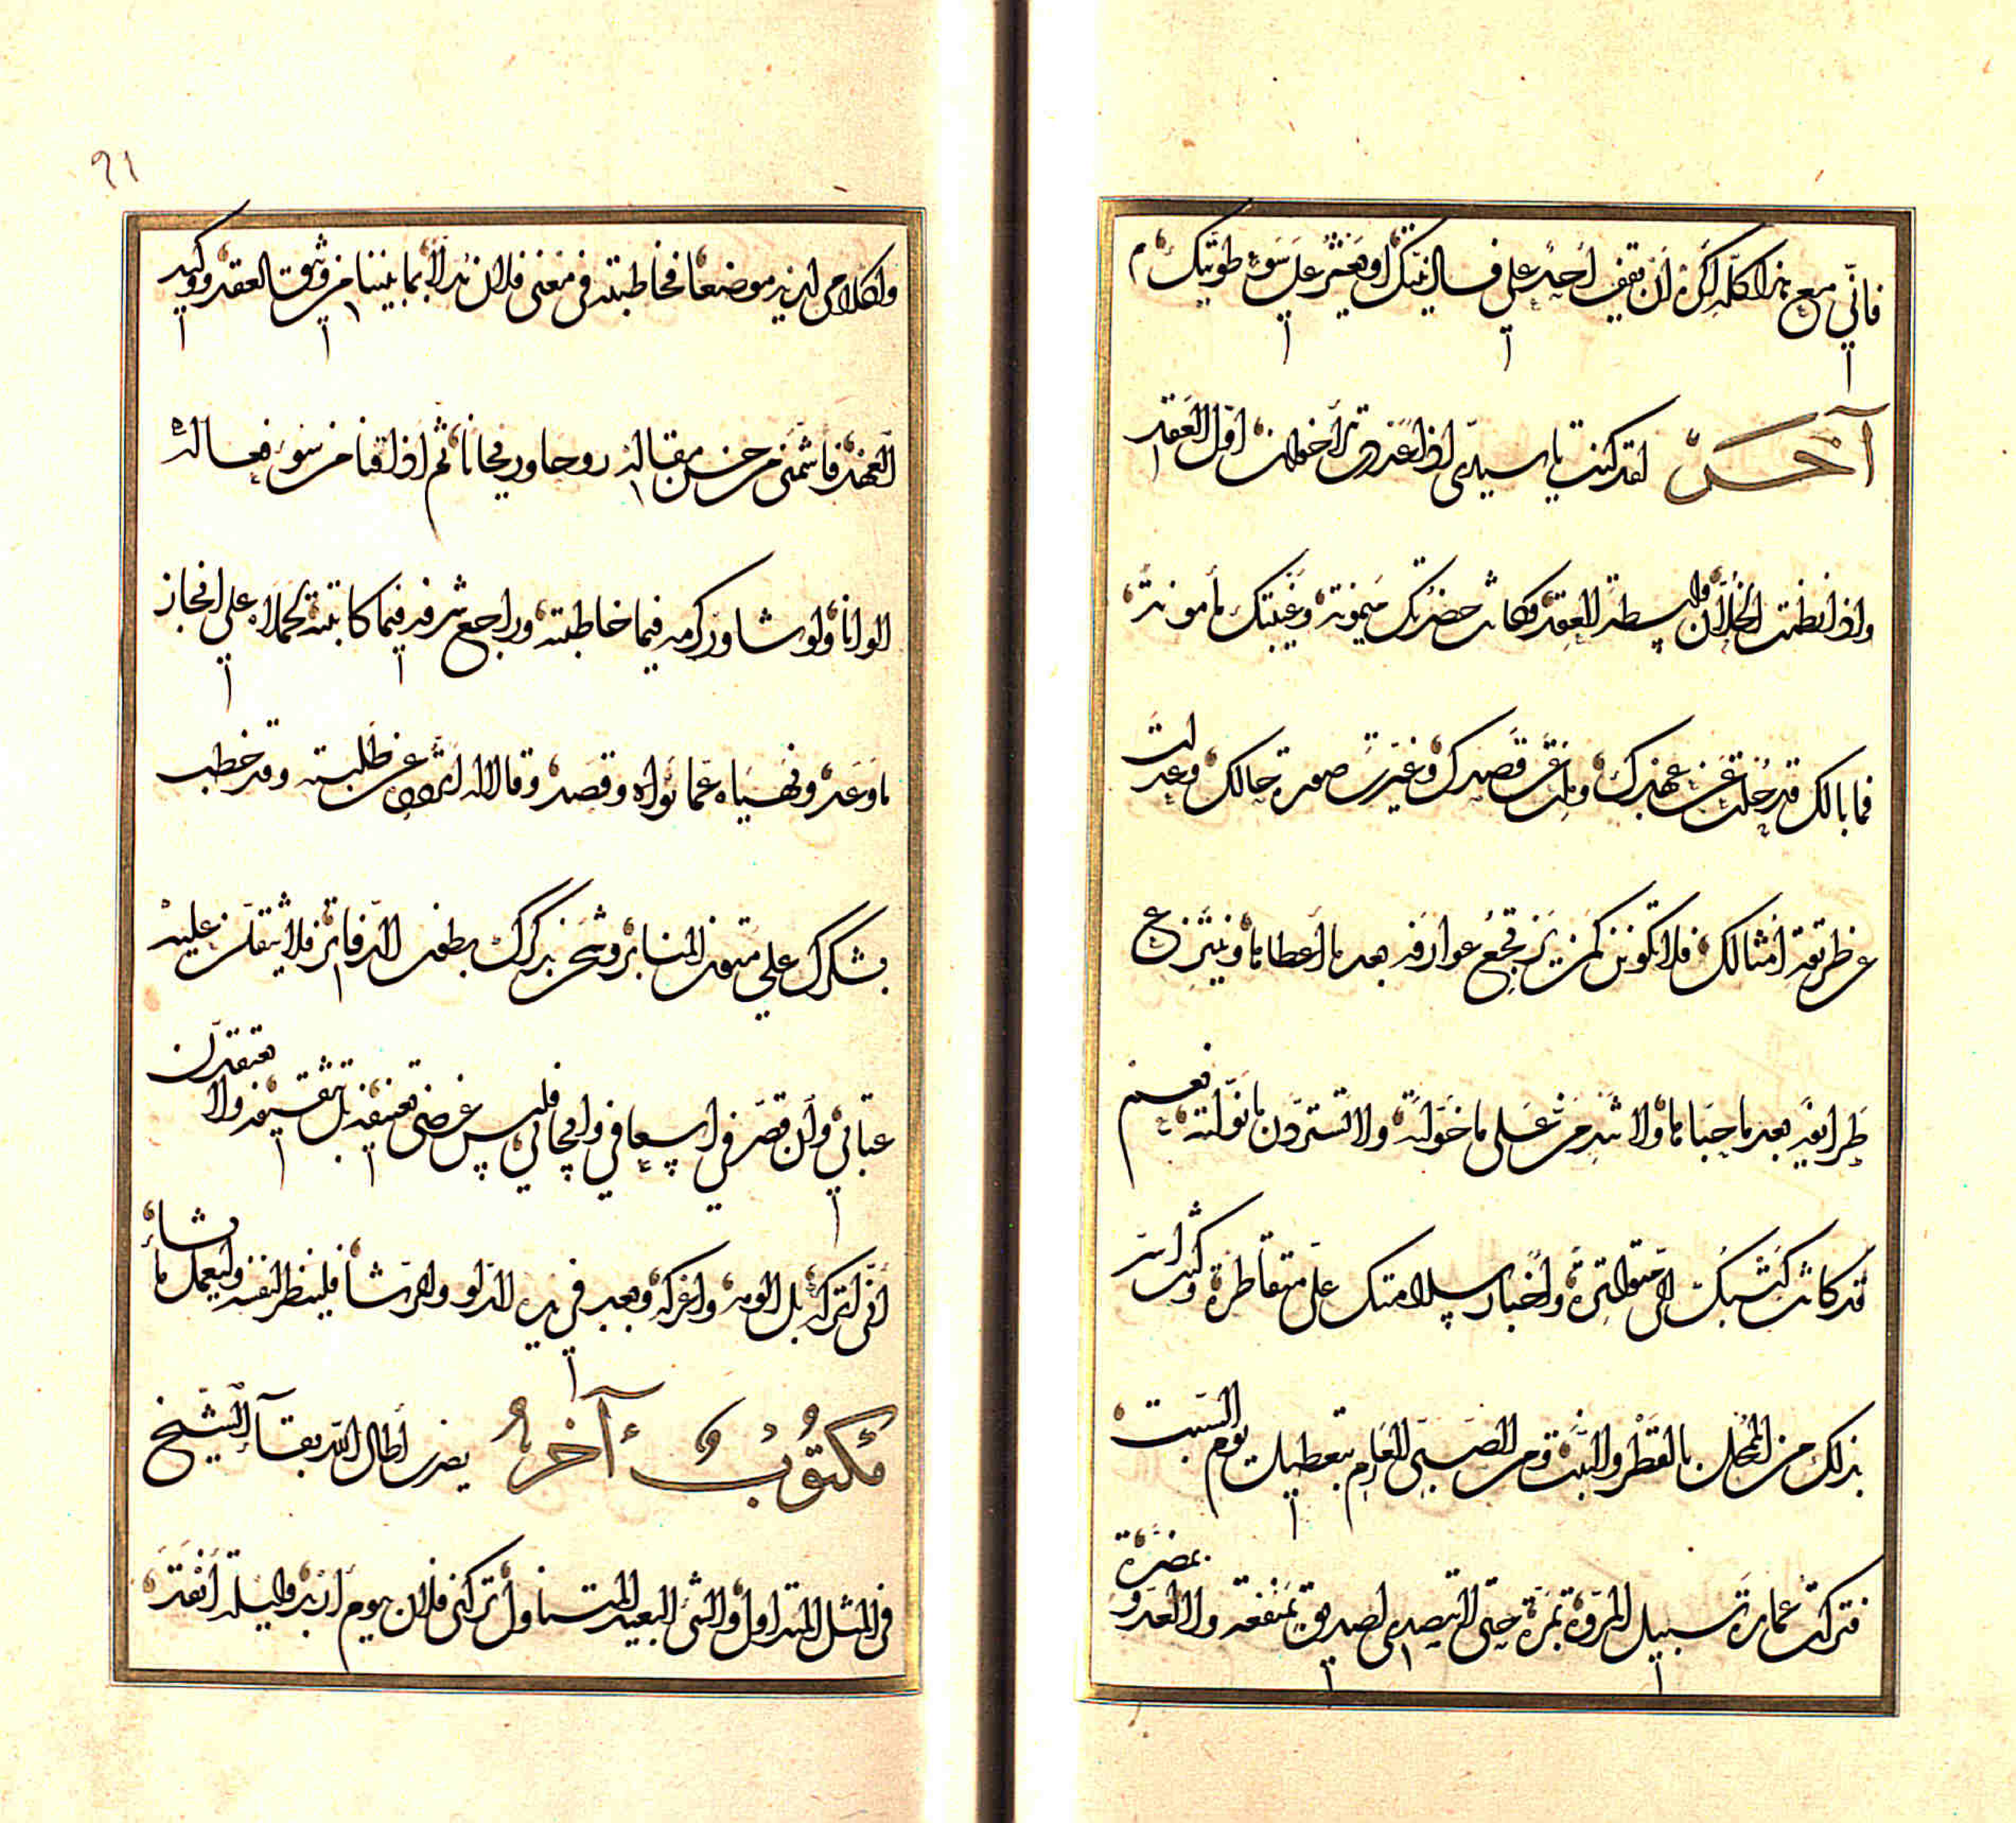 فانّي مع هذا كلّه اكره ان يقف احد على فساد نيتك او يعثر على سوء طويتك م
آخر لقد كنت يا سيدي اذا عددت الاخوان اول العقد
واذا نظمت الخلان واسطة العقد فكانت حضرتك ميمونة وغيبتك مأمونة
فما بالك قد حلت عن عهدك وملت عن قصدك وغيرت صورة حالك وعدلت
عن طريقة امثالك فلا تكونن كمن يرتجع عوارفه بعد ما أعطاها وينتزع
طرائفه بعد ما حباها ولا تندمن على ما خولته ولا تستردن ما نولته فعم
قد كانت كتبك الي متواترة وأخبار سلامتك علي متقاطرة وكنت اسر
بذلك من الممحل بالقطر والنبت ومن الصبي العارم بتعطيل يوم السبت
فتركت عمارة سبيل المروة بمرة حتى لا تتصدى لصديق بمنفعة ولا لعدو بمضرة
٩١
والكلام لديه موضعا فخاطبته في معنى فلان مدلا بما بيننا من وثوق العقد ووكيد
العهد فأشمني من حسن مقاله روحا وريحانا ثم أذاقنا من سوء فعاله
الوانا ولو شاور كرمه فيما خاطبته وراجع شرفه فيما كاتبته لحملاه على انجاز
ما وعد ونهياه عما نواه وقصد وقالا له عن طلبته وقد خطب
بشكرك على متون المنابر وشحن بذكرك بطون الدفاتر فلا يثقلن عليه
عتابي وان قصر في اسعافي وايجابي فليس غرضي تعنيفه بل تثقيفه ولا يعتقدن
أني اتركه بل الومه واعركه وبعد في يدي الدلو والرشا فلينظر لنفسه وليعمل ما يشاء
مكتوب آخر يضرب أطال الله بقاء الشيخ
في المثل المتداول والشئ البعيد المتناول تركني فلان يوم اربد وليلة أنقد